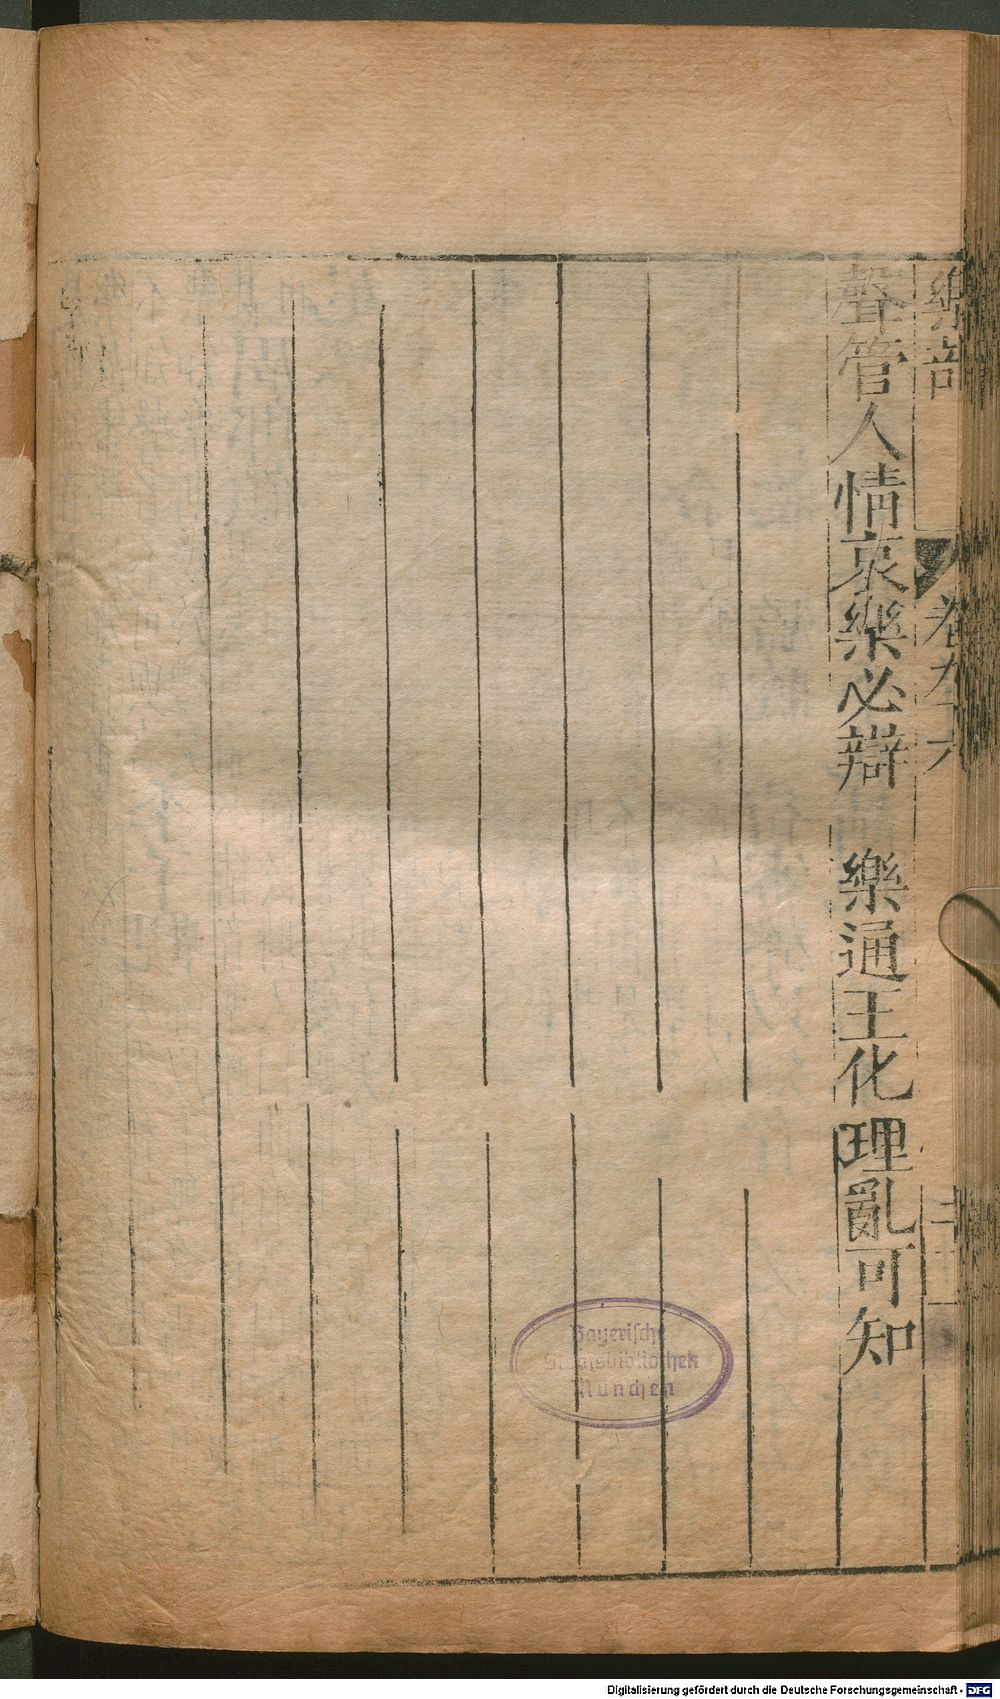 樂部 卷九十六 二十一
聲管人情哀樂必辯 樂通王化理亂可知
Bayerische
Staatsbibliothek
München
Digitalisierung gefördert durch die Deutsche Forschungsgemeinschaft - DFG